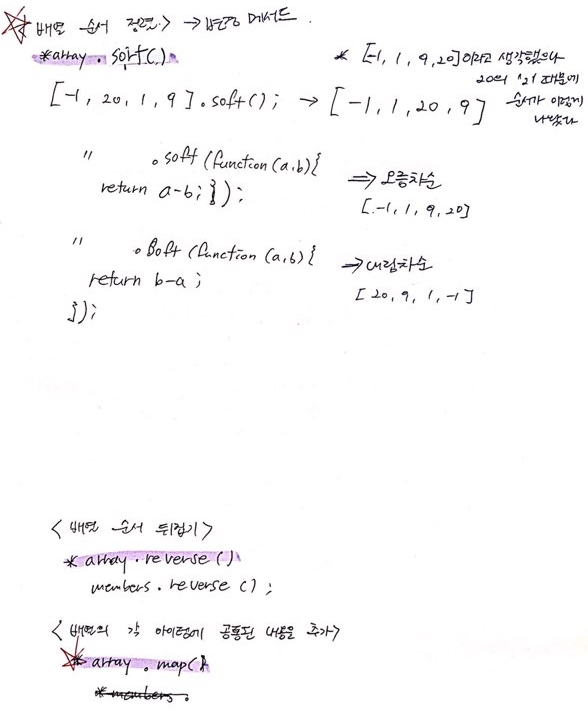 <배열 순서 정렬> → 변경 메서드.
*array.sort()
* [-1, 1, 9, 20]이라고 생각했으나
20의 '2' 때문에
[-1, 20, 1, 9].soft(); → [-1, 1, 20, 9] 순서가 이렇게
나왔다
" .soft (function(a,b){
return a-b; }); ⇒ 오름차순
[-1, 1, 9, 20]
" .soft (function (a,b) { ⇒ 내림차순
return b-a ; [20, 9, 1, -1]
});
<배열 순서 뒤집기>
* array.reverse()
members.reverse();
<배열의 각 아이템에 공통된 내용을 추가>
* array.map()
*members.